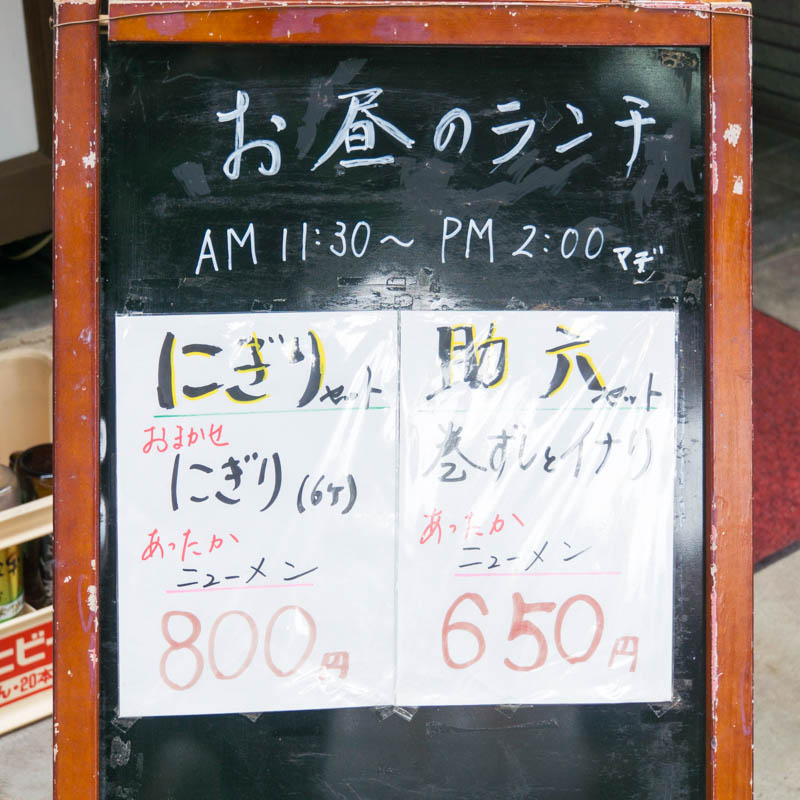 お昼のランチ
AM 11:30～PM 2:00 マデ
にぎりセット
おまかせ
にぎり(6ケ)
あったか
ニューメン
800円
助六セット
巻ずしとイナリ
あったか
ニューメン
650円
ん・20本